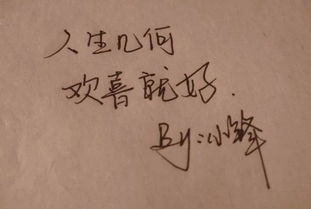 人生几何
欢喜就好.
By:小锋